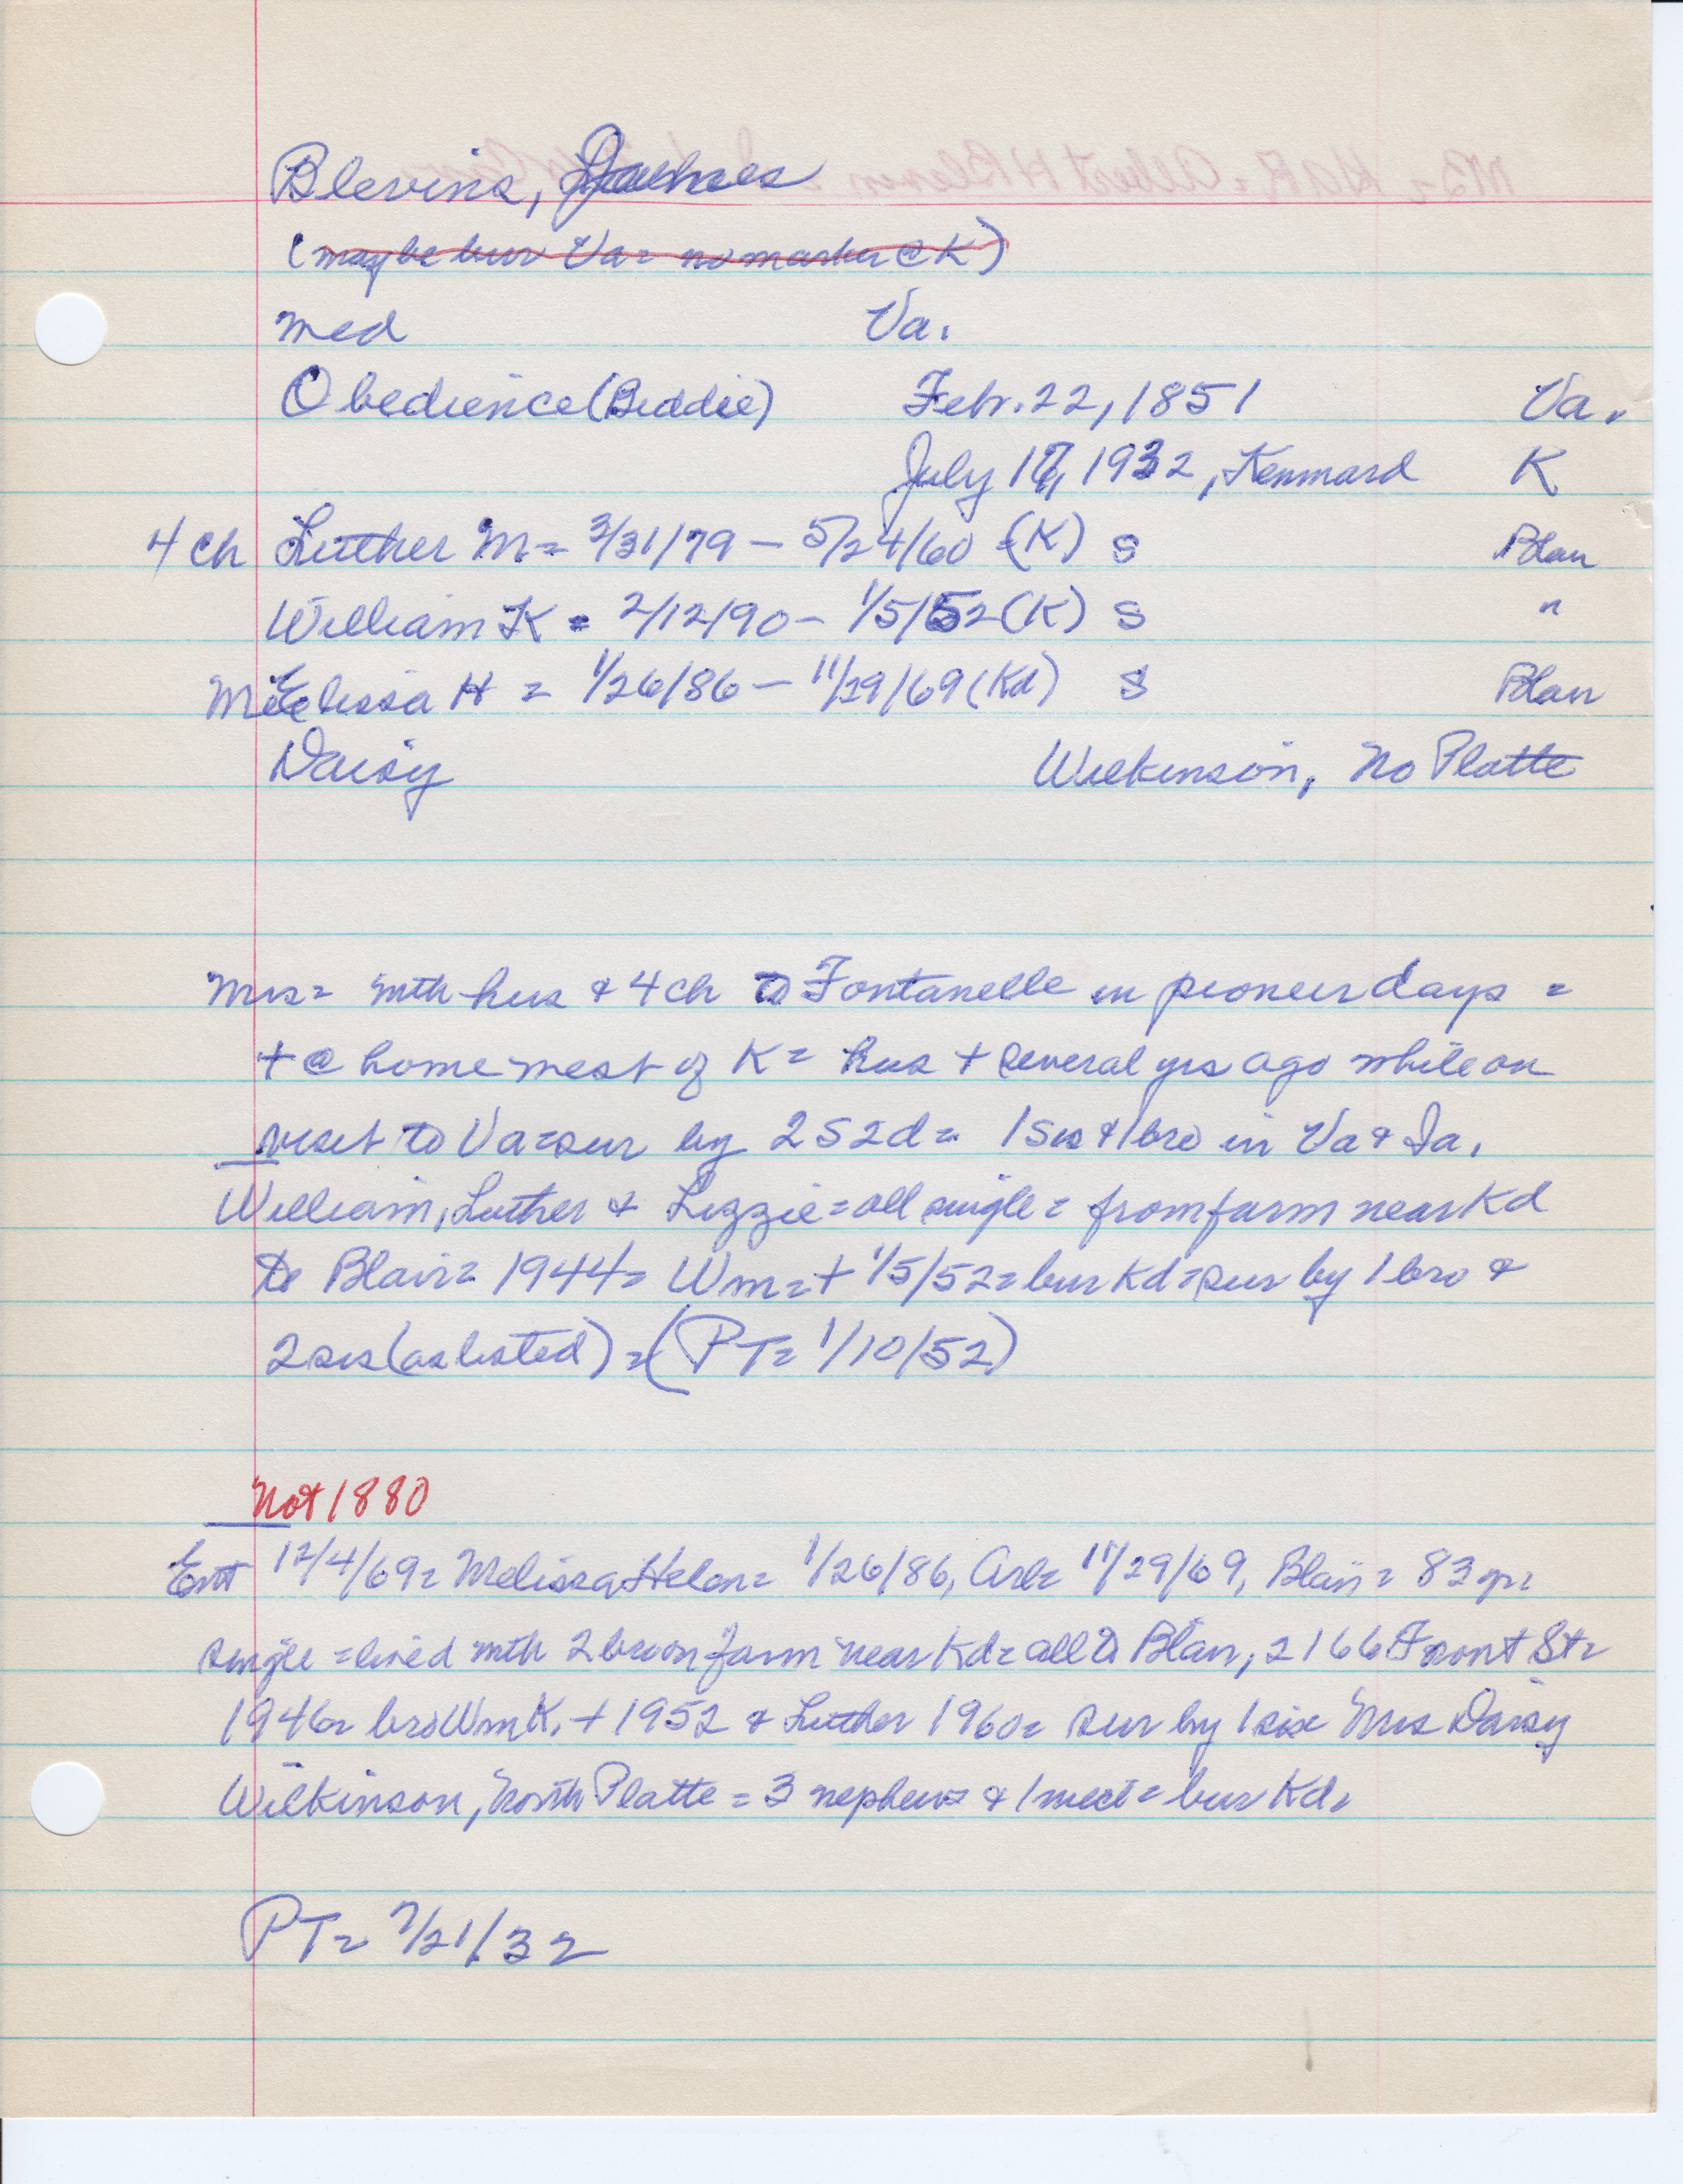 Blevins,
(maybe bur Va = no marker @ K)
med Va.
Obedience (Beddie) Febr. 22, 1851 Va.
July 17, 1932, Kennard K
4 ch Luther M = 3/31/79 - 5/24/60 (K) S Blair
William K = 2/12/90 - 1/5/52 (K) S "
Melissa H = 1/26/86 - 11/29/69 (Kd) S Blair
Daisy Wilkinson, No Platte
Mrs = with hus & 4 ch to Fontanelle in pioneer days =
+ @ home west of K = hus + several yrs ago while on
visit to Va = sur by 2 S 2 d = 1 sis & 1 bro in Va & Ia.
William, Luther & Lizzie = all single = from farm near Kd
to Blair = 1944 = Wm = + 1/5/52 = bur Kd = sur by 1 bro &
2 sis (as listed) = (PT = 1/10/52)
Not 1880
Ent 12/4/69 = Melissa Helen = 1/26/86, Arl = 11/29/69, Blair = 83 yr =
single = lived with 2 bro on farm near Kd = all to Blair, 2166 Front St =
1946 = bro Wm K. + 1952 & Luther 1960 = sur by 1 sis Mrs Daisy
Wilkinson, North Platte = 3 nephews & 1 niece = bur Kd =
PT = 7/21/32